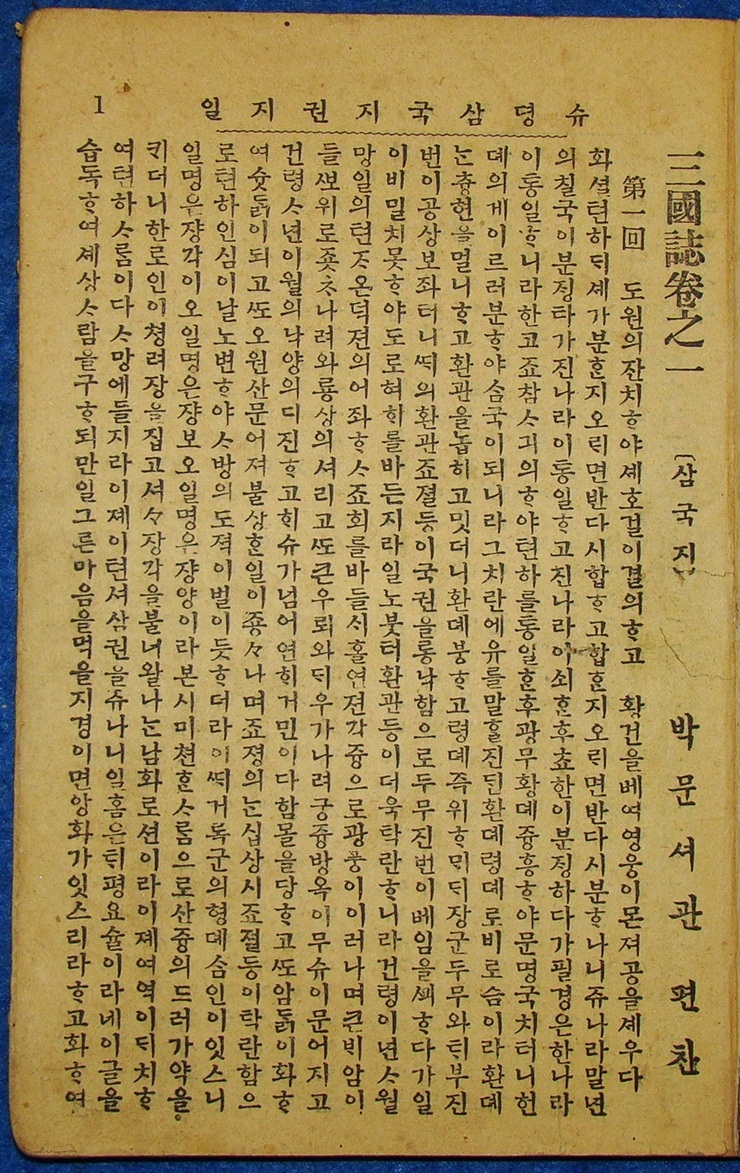 슈뎡삼국지권지일
1
三國誌卷之一 (삼국지) 박문셔관 편찬
第一回 도원의잔치ᄒᆞ야셰호걸이결의ᄒᆞ고 황건을베여영웅이몬져공을셰우다
화셜텬하ᄃᆡ셰가분ᄒᆞᆫ지오ᄅᆡ면반다시합ᄒᆞ고합ᄒᆞᆫ지오ᄅᆡ면반다시분ᄒᆞ나니쥬나라말년
의칠국이분징타가진나라이통일ᄒᆞ고진나라이쇠ᄒᆞᆫ후쵸한이분징하다가필경은한나라
이통일ᄒᆞ니라한고죠참ᄉᆞ긔의ᄒᆞ야텬하를통일ᄒᆞᆫ후광무황뎨즁흥ᄒᆞ야문명국치터니헌
뎨의게이르러분ᄒᆞ야삼국이되니라그치란에유를말ᄒᆞᆯ진ᄃᆡᆫ환뎨령뎨로비로슴이라환뎨
ᄂᆞᆫ츙현을멀니ᄒᆞ고환관을놉히고밋더니환뎨붕ᄒᆞ고령뎨즉위ᄒᆞᄆᆡᄃᆡ장군두무와ᄐᆡ부진
번이공상보좌터니ᄯᆡ의환관죠졀등이국권을롱낙함으로두무진번이베임을ᄭᅬᄒᆞ다가일
이비밀치못ᄒᆞ야도로혀ᄒᆡ를바든지라일노붓터환관등이더욱탁란ᄒᆞ니라건령이년ᄉᆞ월
망일의텬ᄌᆞ온덕젼의어좌ᄒᆞᄉᆞ죠회를바들ᄉᆡ홀연젼각즁으로광풍이이러나며큰ᄇᆡ암이
들ᄲᅩ위로죳ᄎᆞ나려와룡상의셔리고ᄯᅩ큰우뢰와ᄃᆡ우가나려궁즁방옥이무슈이문어지고
건령ᄉᆞ년이월의낙양의디진ᄒᆞ고ᄒᆡ슈가넘어연ᄒᆡ거민이다함몰을당ᄒᆞ고ᄯᅩ암ᄃᆞᆰ이화ᄒᆞ
여슛ᄃᆞᆰ이되고ᄯᅩ오원산문어져불상ᄒᆞᆫ일이죵々나며죠졍의ᄂᆞᆫ십상시죠졀등이탁란함으
로텬하인심이날노변ᄒᆞ야ᄉᆞ방의도젹이벌이듯ᄒᆞ더라이ᄯᆡ거록군의형뎨삼인이잇스니
일명은쟝각이오일명은쟝보오일명은쟝양이라본시미쳔ᄒᆞᆫᄉᆞᄅᆞᆷ으로산즁의드러가약을
ᄏᆡ더니한로인이쳥려장을집고셔々장각을불너왈나ᄂᆞᆫ남화로션이라이졔여역이ᄃᆡ치ᄒᆞ
여텬하ᄉᆞᄅᆞᆷ이다ᄉᆞ망에들지라이졔이텬셔삼권을쥬나니일홈은ᄐᆡ평요슐이라네이글을
습독ᄒᆞ여셰상ᄉᆞ람을구ᄒᆞ되만일그른마음을먹을지경이면앙화가잇스리라ᄒᆞ고화ᄒᆞ여